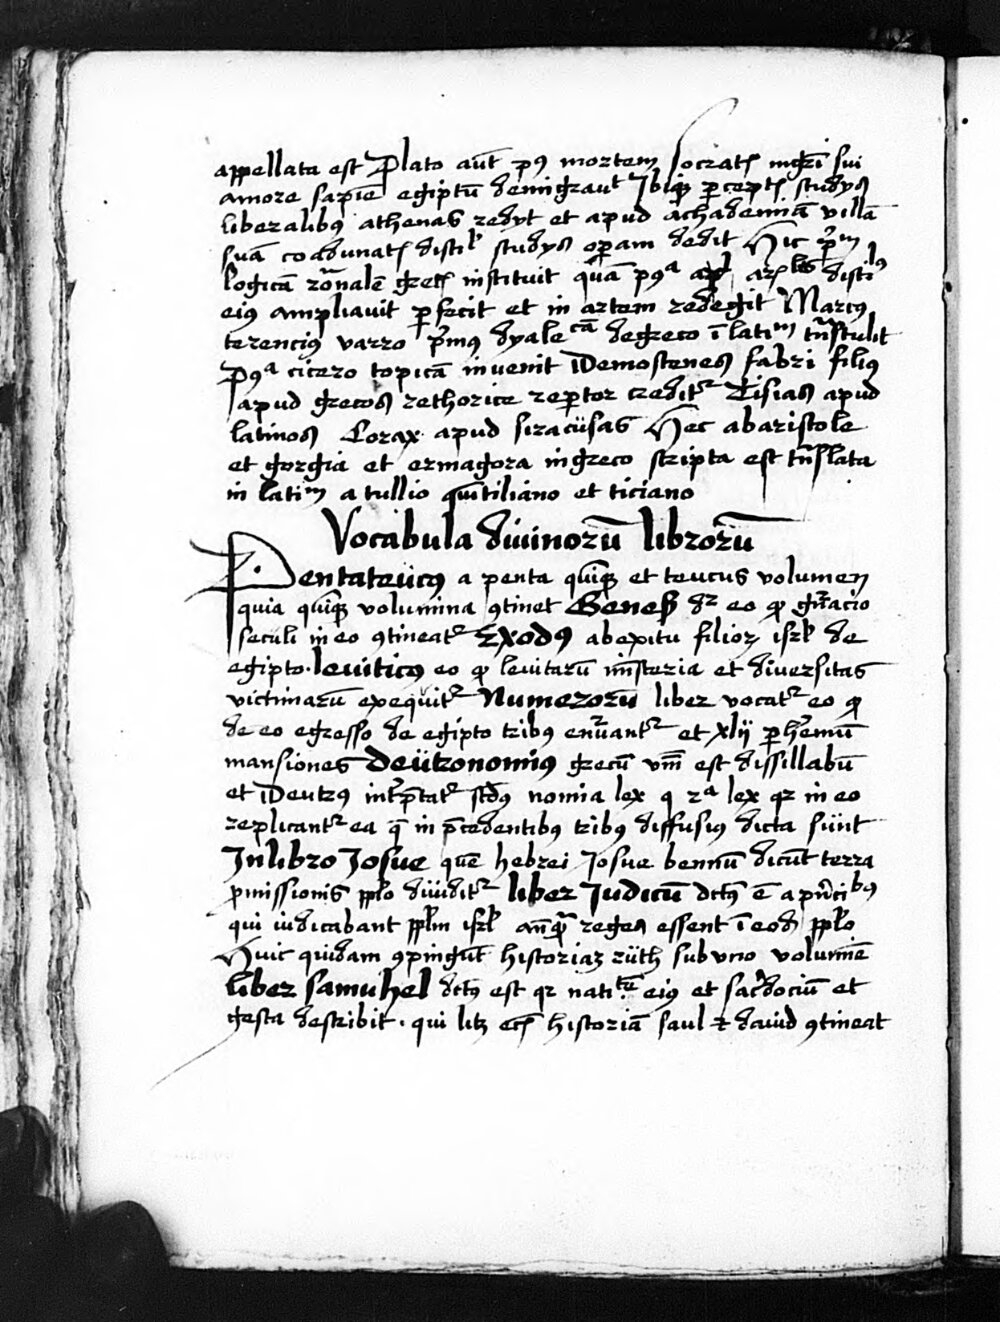 appellata est Plato aūt p9 mortem socrat͛ mgr̄i sui
amore sapiē egiptū demigraut Ibiq₃ ꝑcept͛ studys
liberalibꝰ athenas redyt et apud achademiā villā
suā coadunat͛ studys oꝑam dedit Hic p̄ᵐ
logicā instituit quā p9ᵃ
eiꝰ ampliavit ꝑfecit et in artem redegit Marcꝰ
terenciꝰ varro p̄mꝰ dyaleᶜā degreco ī latiᵐ tn̄stulit
P9ᵃ cicero topicā invenit Demostenes fabri filiꝰ
apud grecos rethorice reꝑtor creditʳ Tisias apud
latinos Corax apud siracusas Hec abaristole
et gorgia et ermagora ingreco scripta est tn̄slata
in latiᵐ a tullio qm̄tiliano et ticiano
Vocabula diuinorū librorū
Pentateucꝰ a penta qui̅q₃ et teucus volumen
quia qui̅q₃ volumina ꝯtinet Genes͛ dr̄ eo ꝙ gn̄acio
seculi in eo ꝯtineatʳ Exodꝰ abexitu filioꝝ isrl̄ de
egipto. leviticꝰ eo ꝙ levitarū mīsteria et diversitas
victimarū exequitʳ Numerorū liber vocatʳ eo ꝙ
de eo egresso de egipto tribꝰ enūantʳ et xlij ꝑ heremū
mansiones Deutronomiꝰ grecū vm̄ est dissillabū
et Deutrꝰ int̄p̄tatʳ scd̄ꝰ nomia lex q 2ᵃ lex qꝛ in eo
replicantʳ ea q̄ in p̄cedentibꝰ tribꝰ diffusiꝰ dicta sunt
In libro Josue quē hebrei Josue bennū dicūt terra
ꝓmissionis ppl̄o diuiditʳ liber Iudicū dctꝰ ē a pn̄ciᵇꝰ
qui iudicabant ppl̄m isrl̄ an̄q̄ reges essent ī eod̄ ppl̄o
Huic quidam ꝯpingūt historiaꝫ ruth sub vno volumīe
liber samuhel dctꝰ est qꝛ natiᵗᵉ̄ eiꝰ et sac̄dociū et
gesta describit. qui litꝫ ec͛ historiā saul ⁊ dauid ꝯtineat